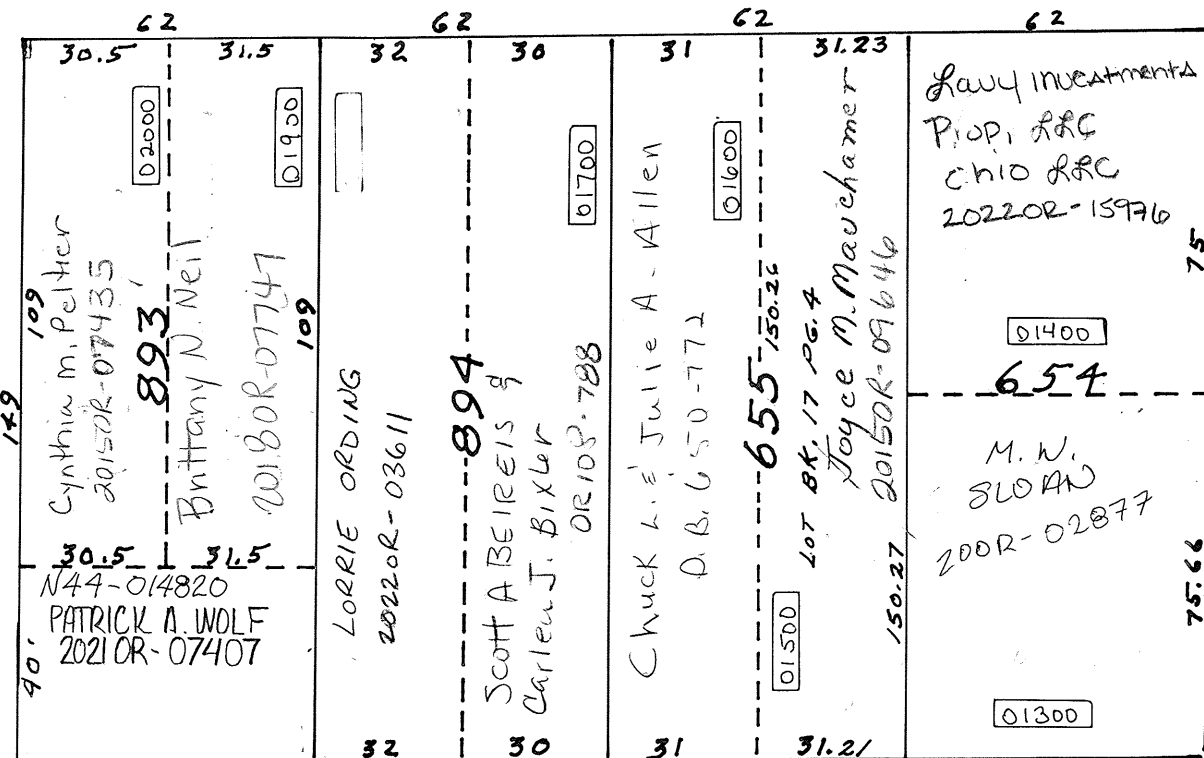 62
62
62
62
30.5
31.5
32
30
31
31.23
02000
01900
109
149
Cynthia M. Peltier
2015OR-07435
893
Brittany N. Neil
2018OR-07747
109
30.5
31.5
N44-014820
PATRICK A. WOLF
2021 OR-07407
40'
LORRIE ORDING
2022OR-03611
894
01700
Scott A BEIREIS &
Carleen J. Bixler
OR108-788
32
30
01600
Chuck L. & Julie A. Allen
D.B. 650-772
655
150.26
LOT BK. 17 PG. 4
Joyce M. Mauchamer
2015OR-09646
01500
150.27
31
31.21
Lavy Investments
Prop, LLC
Ohio LLC
2022OR-15976
75
01400
654
M. W.
SLOAN
200R-02877
75.66
01300